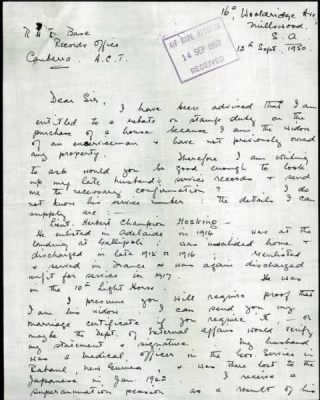 16ᴬ Wooldridge Ave
Millswood
S.A.
12th Sept. 1950.
AIF BASE RECORDS
14 SEP 1950
RECEIVED
Base
Records Office
Canberra A.C.T.
Dear Sir,
I have been advised that I am
entitled to a rebate on stamp duty on the
purchase of a house because I am the widow
of an exserviceman & have not previously owned
any property.
Therefore I am writing
to ask would you be good enough to look
up my late husband's service records & send
me the necessary confirmation? I do
not know his service number - the details I can
supply are
Lieut. Herbert Champion Hosking
He enlisted in Adelaide in 1914 was at the
landing at Gallipoli: was invalided home &
discharged in late 1915 or 1916; reenlisted
& served in France & was again discharged
unfit for service in 1917. He was
in the 10th Light Horse.
I presume you will require proof that
I am his widow I can send you my
marriage certificate if you require it or
maybe the Dept of External Affairs would verify
my statement & signature My husband
was a medical officer in the Service in
Rabaul, New Guinea & was there lost to the
Japanese in Jan. 1942 I receive a
superannuation pension as a result of his